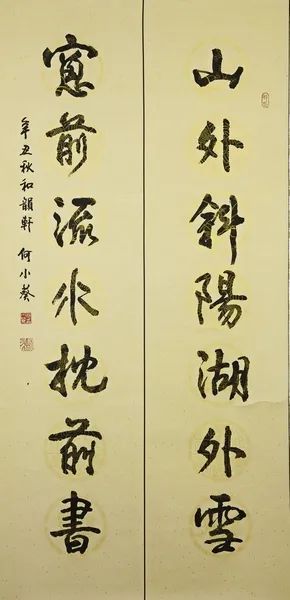 山外斜陽湖外雪
窓前流水枕前書
辛丑秋和韻軒 何小葵